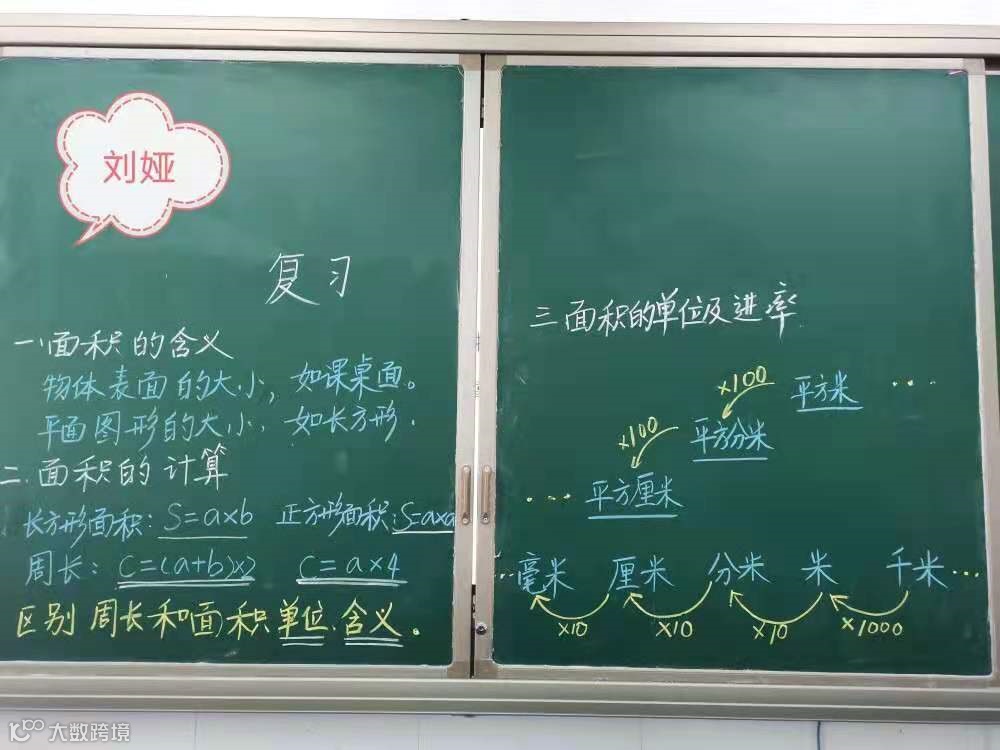 刘娅
复习
一、面积的含义
物体表面的大小，如课桌面。
平面图形的大小，如长方形.
二.面积的计算
长方形面积：S=a×b 正方形面积：S=a×a
周长：C=(a+b)×2 C=a×4
区别 周长和面积单位、含义.
三、面积的单位及进率
×100 平方米 ····
×100 平方分米
··· 平方厘米
··毫米 厘米 分米 米 千米···
×10 ×10 ×10 ×1000
大数跨境